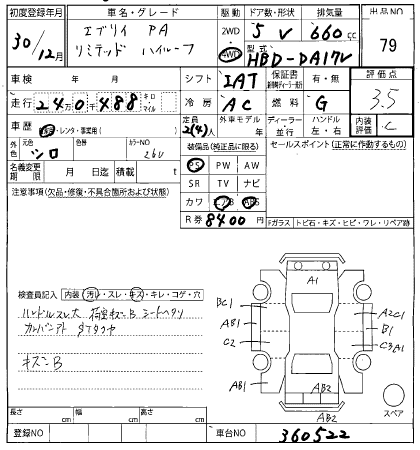 初度登録年月 車名・グレード 駆動 ドア数・形状 排気量 出品NO
30/12月 エブリイ PA 2WD 5 V 660cc 79
リミテッド ハイルーフ 4WD 型式 HBD-DA17V
車検 年 月 シフト IAT 保証書 有・無 評価点
走行 24万0千488 キロ・マイル 冷房 AC 燃料 G 3.5
車歴 自家・レンタ・事業用( ) 定員 2(4)人 外車モデル 年 ディーラー・並行 ハンドル 左・右 内装評価 C
外色 元色 シロ 色替 カラーNO 26U 装備品(純正品に限る) セールスポイント(正常に動作するもの)
名義変更期限 月 日迄 積載 t PS PW AW
注意事項(欠品・修復・不具合箇所および状態) SR TV ナビ
カワ エアB ABS
R券 8400 円 Fガラス トビ石・キズ・ヒビ・ワレ・リペア跡
A1
検査員記入 内装(汚れ・スレ・キズ・キレ・コゲ・穴
ハンドルスレ大 荷室キズB シートヘタリ
キズB
BC1 A2C1
AB1 B1
C2 C3A1
AB1 AB2
AB2
スペア
長さ cm 幅 cm 高さ cm
登録NO 車台NO 360522